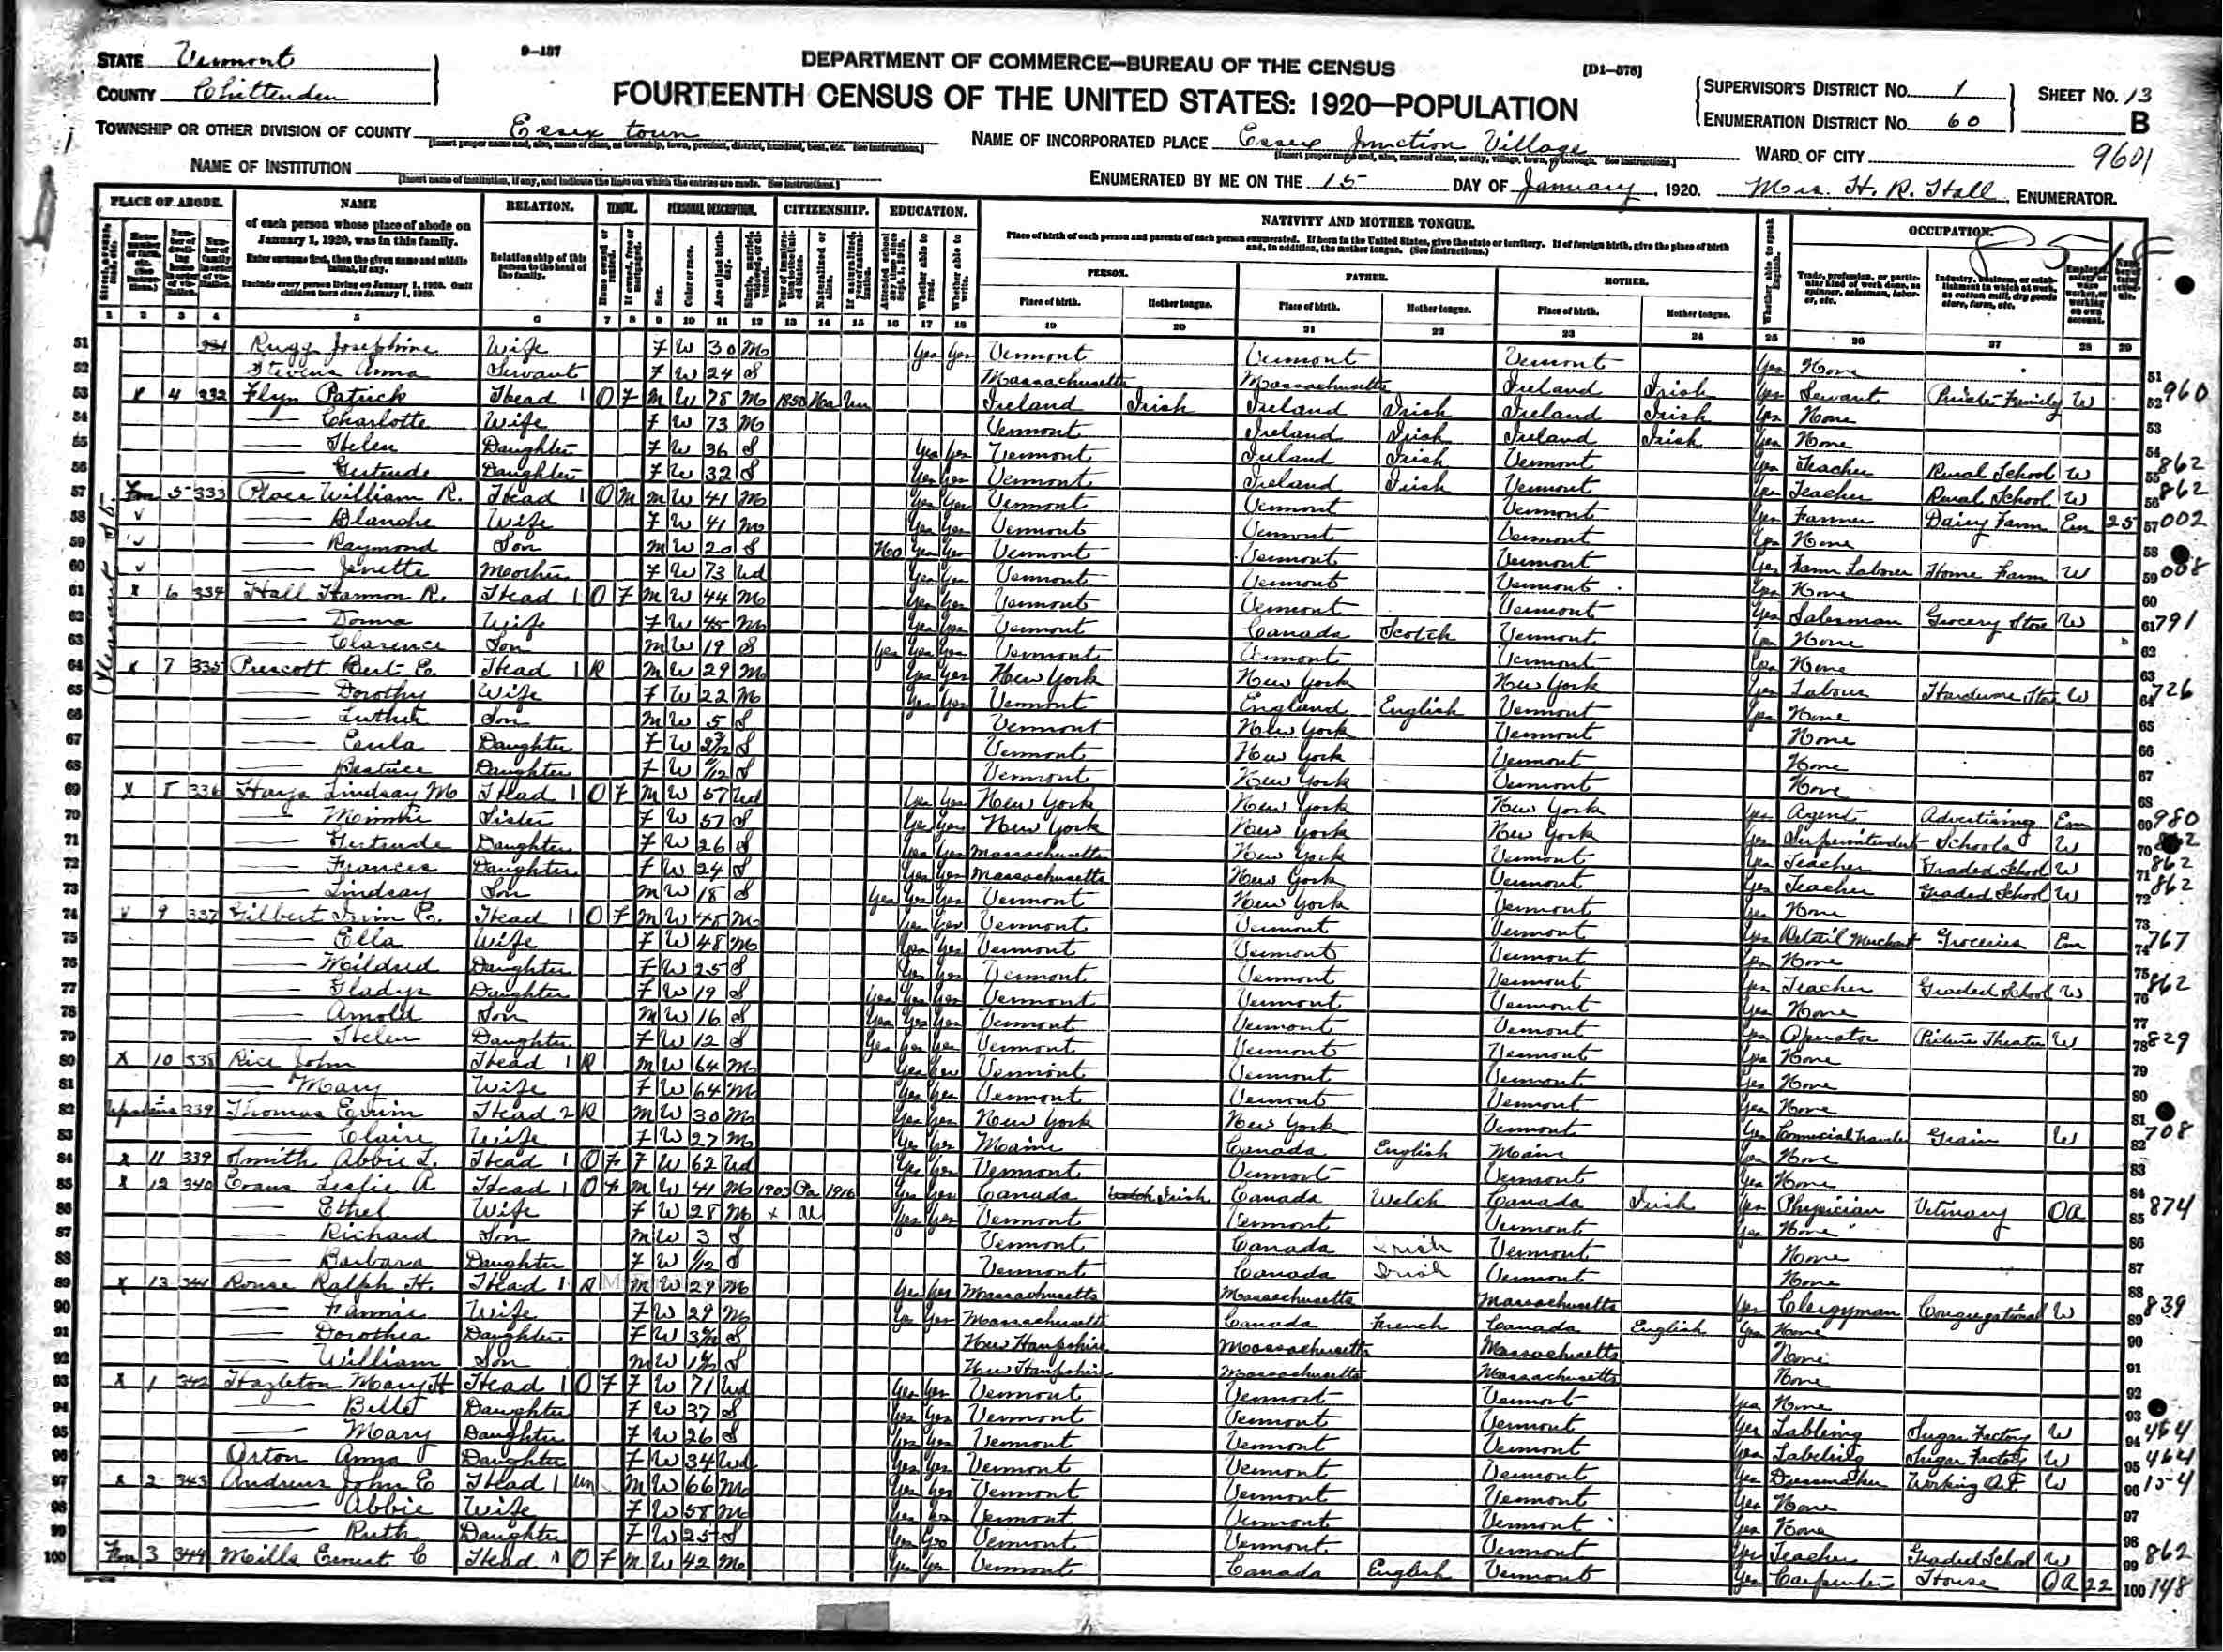 STATE Vermont
9-137
DEPARTMENT OF COMMERCE—BUREAU OF THE CENSUS
[D1-578]
COUNTY Chittenden
FOURTEENTH CENSUS OF THE UNITED STATES: 1920—POPULATION
SUPERVISOR'S DISTRICT No. 1
ENUMERATION DISTRICT No. 60
SHEET No. 13 B
TOWNSHIP OR OTHER DIVISION OF COUNTY Essex town
NAME OF INCORPORATED PLACE Essex Junction Village
WARD OF CITY
9601
NAME OF INSTITUTION
ENUMERATED BY ME ON THE 15 DAY OF January, 1920. Mrs. H. R. Hall, ENUMERATOR.
PLACE OF ABODE. NAME RELATION. TENURE. PERSONAL DESCRIPTION. CITIZENSHIP. EDUCATION. NATIVITY AND MOTHER TONGUE. OCCUPATION.
of each person whose place of abode on January 1, 1920, was in this family.
Enter surname first, then the given name and middle initial, if any.
Include every person living on January 1, 1920. Omit children born since January 1, 1920.
Relationship of this person to the head of the family.
PERSON. FATHER. MOTHER.
Place of birth. Mother tongue. Place of birth. Mother tongue. Place of birth. Mother tongue.
1 2 3 4 5 6 7 8 9 10 11 12 13 14 15 16 17 18 19 20 21 22 23 24 25 26 27 28 29
Pleasant St.
51 Rugg Josephine Wife F W 30 M Yes Yes Vermont Vermont Vermont Yes None
52 Stevens Anna Servant F W 24 S Massachusetts Massachusetts Ireland Irish Yes Servant Private Family W 960
53 4 332 Flyn Patrick Head 1 O F M W 78 M 1850 Na Un Ireland Irish Ireland Irish Ireland Irish Yes None
54 Charlotte Wife F W 73 M Vermont Ireland Irish Ireland Irish Yes None
55 Helen Daughter F W 36 S Yes Yes Vermont Ireland Irish Vermont Yes Teacher Rural School W 862
56 Gertrude Daughter F W 32 S Yes Yes Vermont Ireland Irish Vermont Yes Teacher Rural School W 862
57 Fm 5 333 Place William R. Head 1 O M M W 41 M Yes Yes Vermont Vermont Vermont Yes Farmer Dairy Farm Em 25 002
58 Blanche Wife F W 41 M Yes Yes Vermont Vermont Vermont Yes None
59 Raymond Son M W 20 S No Yes Yes Vermont Vermont Vermont Yes Farm Laborer Home Farm W 008
60 Jenette Mother F W 73 Wd Yes Yes Vermont Vermont Vermont Yes None
61 x 6 334 Hall Harmon R. Head 1 O F M W 44 M Yes Yes Vermont Vermont Vermont Yes Salesman Grocery Store W 791
62 Donna Wife F W 45 M Yes Yes Vermont Canada Scotch Vermont Yes None
63 Clarence Son M W 19 S Yes Yes Yes Vermont Vermont Vermont Yes None
64 x 7 335 Prescott Bert E. Head 1 R M W 29 M Yes Yes New York New York New York Yes Labour Hardware Store W 726
65 Dorothy Wife F W 22 M Yes Yes Vermont England English Vermont Yes None
66 Luther Son M W 5 S Vermont New York Vermont None
67 Eula Daughter F W S Vermont New York Vermont None
68 Beatrice Daughter F W S Vermont New York Vermont None
69 x 8 336 Hays Lindsay M Head 1 O F M W 57 Wd Yes Yes New York New York New York Yes Agent Advertising Em 980
70 Minnie Sister F W 57 S Yes Yes New York New York New York Yes Superintendent Schools W
71 Gertrude Daughter F W 26 S Yes Yes Massachusetts New York Vermont Yes Teacher Graded School W 862
72 Frances Daughter F W 24 S Yes Yes Massachusetts New York Vermont Yes Teacher Graded School W 862
73 Lindsay Son M W 18 S Yes Yes Yes Vermont New York Vermont Yes None
74 9 337 Gilbert Irvin E. Head 1 O F M W 48 M Yes Yes Vermont Vermont Vermont Yes Retail Merchant Groceries Em 767
75 Ella Wife F W 48 M Yes Yes Vermont Vermont Vermont Yes None
76 Mildred Daughter F W 25 S Yes Yes Vermont Vermont Vermont Yes Teacher Graded School W 862
77 Gladys Daughter F W 19 S Yes Yes Yes Vermont Vermont Vermont Yes None
78 Arnold Son M W 16 S Yes Yes Yes Vermont Vermont Vermont Yes Operator Picture Theater W 829
79 Helen Daughter F W 12 S Yes Yes Yes Vermont Vermont Vermont Yes None
80 x 10 338 Rice John Head 1 R M W 64 M Yes Yes Vermont Vermont Vermont Yes None
81 Mary Wife F W 64 M Yes Yes Vermont Vermont Vermont Yes None
82 Upstairs 339 Thomas Ervin Head 2 R M W 30 M Yes Yes New York New York Vermont Yes Commercial Traveler Grain W 708
83 Claire Wife F W 27 M Yes Yes Maine Canada English Maine Yes None
84 x 11 339 Smith Abbie L. Head 1 O F F W 62 Wd Yes Yes Vermont Vermont Vermont Yes None
85 x 12 340 Evans Leslie A Head 1 O F M W 41 M 1903 Pa 1916 Yes Yes Canada Irish Canada Welch Canada Irish Yes Physician Vetinary OA 874
86 Ethel Wife F W 28 M x Al Yes Yes Vermont Vermont Vermont Yes None
87 Richard Son M W 3 S Vermont Canada Irish Vermont None
88 Barbara Daughter F W S Vermont Canada Irish Vermont None
89 x 13 341 Rouse Ralph H. Head 1 R M W 29 M Yes Yes Massachusetts Massachusetts Massachusetts Yes Clergyman Congregational W 839
90 Fannie Wife F W 29 M Yes Yes Massachusetts Canada French Canada English Yes None
91 Dorothea Daughter F W S New Hampshire Massachusetts Massachusetts None
92 William Son M W S New Hampshire Massachusetts Massachusetts None
93 x 1 342 Hazleton Mary H Head 1 O F F W 71 Wd Yes Yes Vermont Vermont Vermont Yes None
94 Belle Daughter F W 37 S Yes Yes Vermont Vermont Vermont Yes Labling Sugar Factory W 464
95 Mary Daughter F W 26 S Yes Yes Vermont Vermont Vermont Yes Labeling Sugar Factory W 464
96 Orton Anna Daughter F W 34 Wd Yes Yes Vermont Vermont Vermont Yes Dressmaker Working Out W 154
97 x 2 343 Andrews John E Head 1 Un M W 66 M Yes Yes Vermont Vermont Vermont Yes None
98 Abbie Wife F W 58 M Yes Yes Vermont Vermont Vermont Yes None
99 Ruth Daughter F W 25 S Yes Yes Vermont Vermont Vermont Yes Teacher Graded School W 862
100 Fm 3 344 Mills Ernest C Head 1 O F M W 42 M Yes Yes Vermont Canada English Vermont Yes Carpenter House OA 22 148